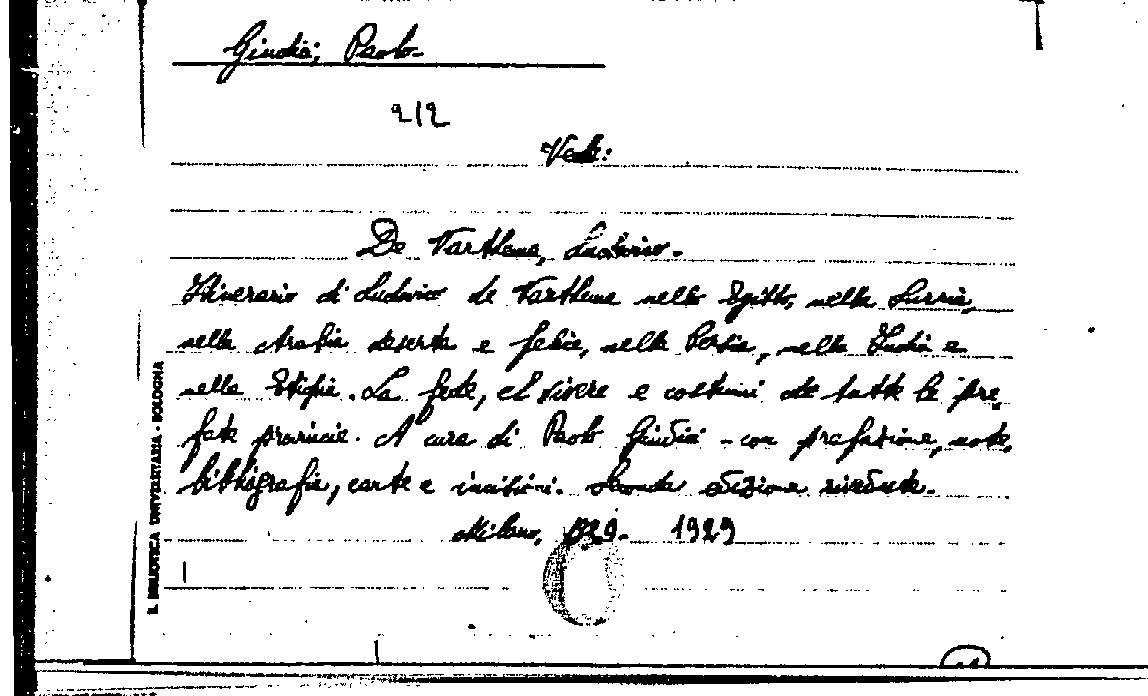 Giudici, Paolo
212
Vedi:
De Varthema, Ludovico.
Itinerario di Ludovico de Varthema nello Egitto, nella Surria,
nella Arabia deserta e felice, nella Persia, nella India e
nella Etiopia. La fede, el vivere e costumi de tutte le pre,
fate provincie. A cura di Paolo Giudici - con prefazione, note,
bibliografia, carte e incisioni. Seconda edizione riveduta.
Milano, 1929. 1929
R. BIBLIOTECA UNIVERSITARIA - BOLOGNA